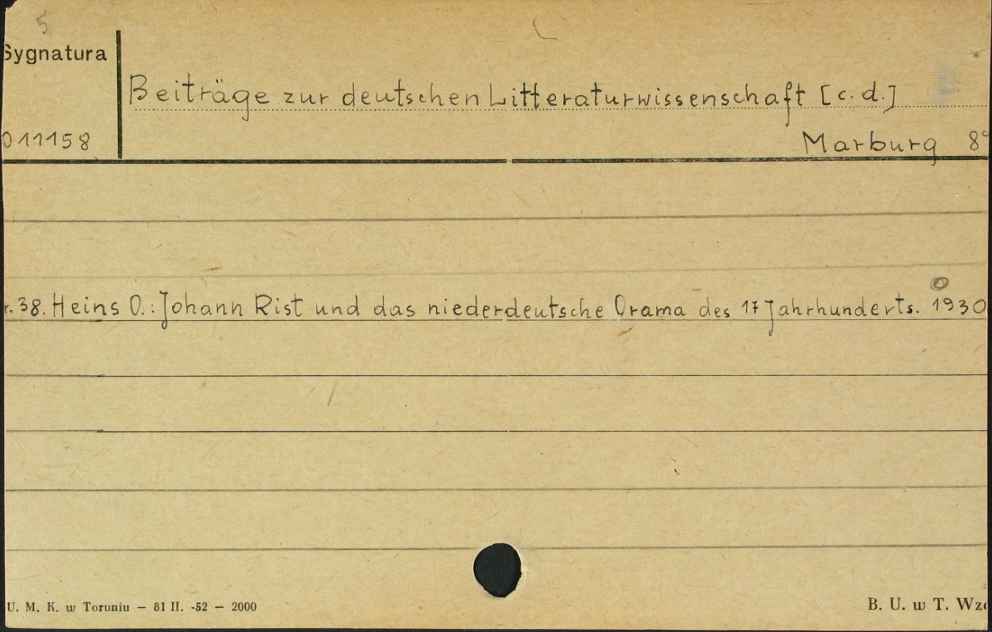 5
Sygnatura
Beiträge zur deutschen Litteraturwissenschaft [c.d.]
011158
Marburg 8°
r. 38. Heins O.: Johann Rist und das niederdeutsche Drama des 17 Jahrhunderts. 1930
U. M. K. w Toruniu — 81 II. -52 — 2000
B. U. w T.